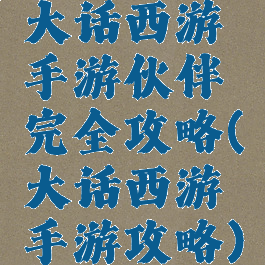 大话西游
手游伙伴
完全攻略(
大话西游
手游攻略)